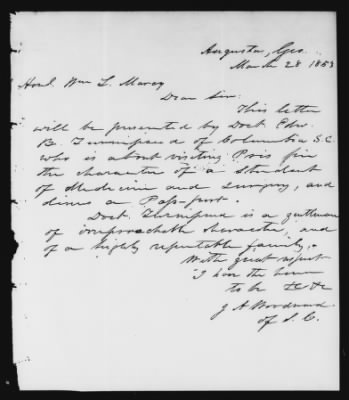 Augusta, Geo.
March 28 1853
Honl. Wm L. Marcy
Dear Sir:
This letter
will be presented by Doct. Edw.
B. of Columbia S.C.
who is about visiting Paris in
the character of a Student
of Medicine and Surgery, and
desires a Pass-port.
Doct. is a gentleman
of irreproachable character, and
of a highly reputable family.
With great respect
I have the honor
to be &c &c
J A Woodward
of S. C.